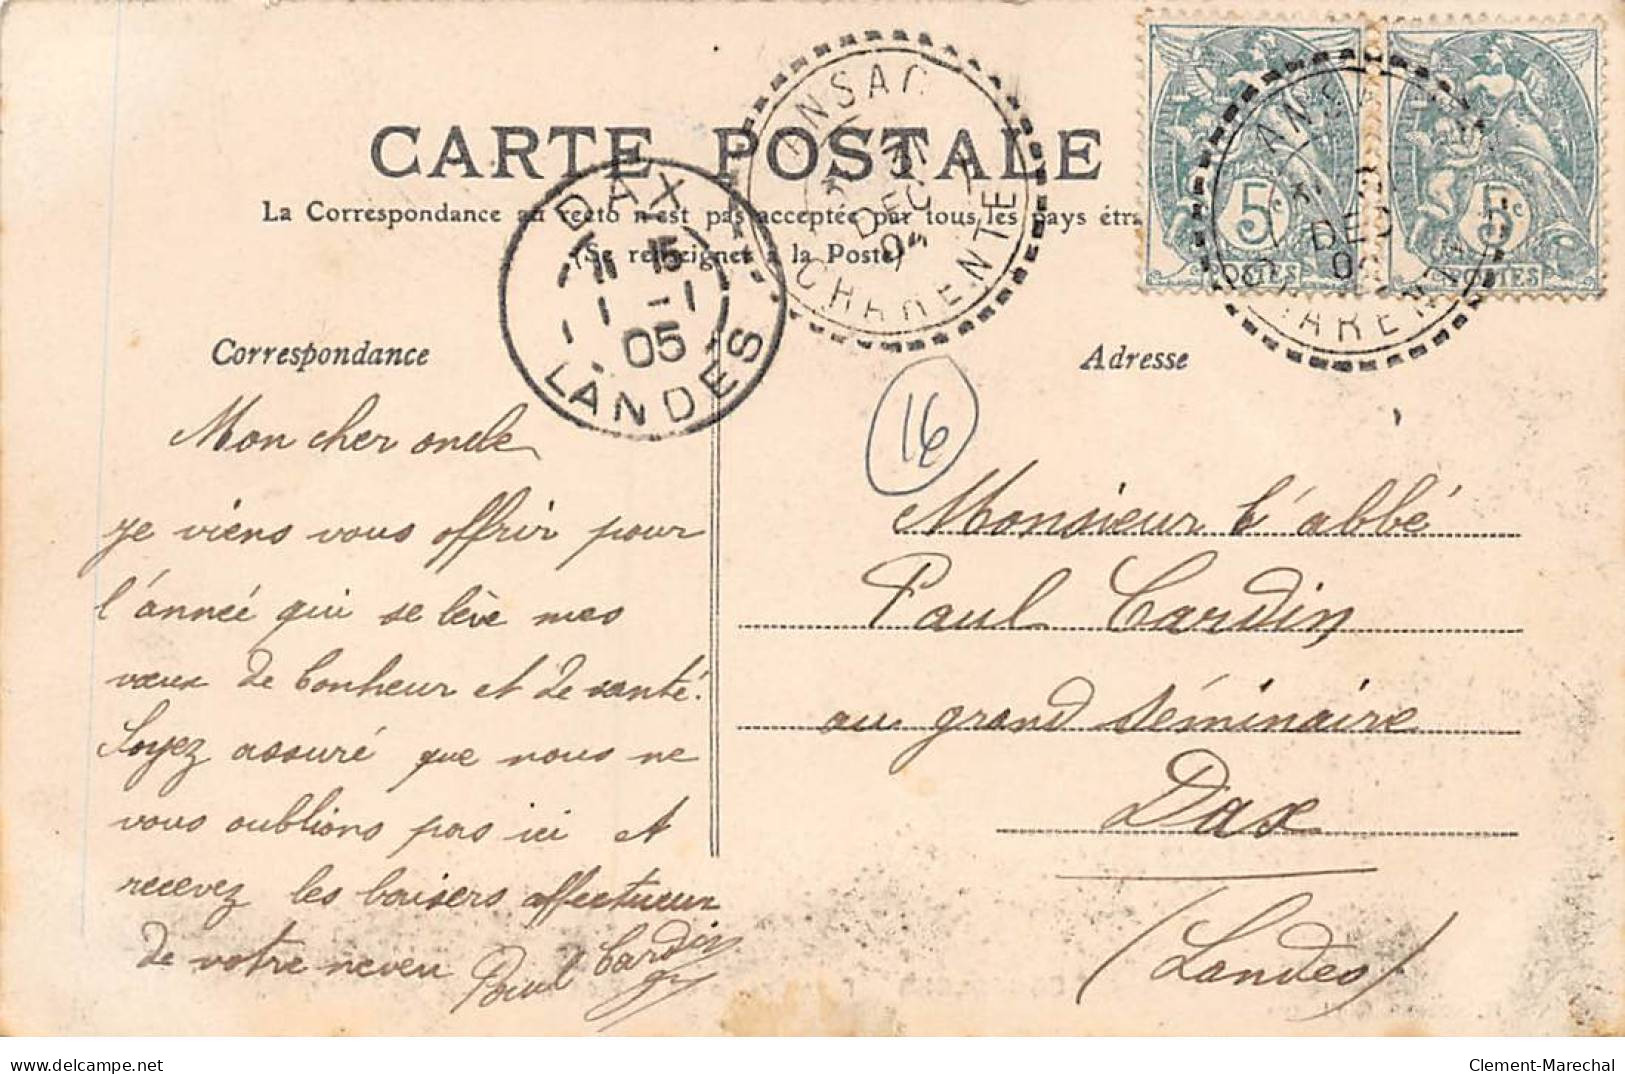 CARTE POSTALE
La Correspondance au recto n'est pas acceptée par tous les pays étra
(Se renseigner à la Poste)
ANSAC
DEC
04
CHARENTE
DAX
11 15
1 - 1
05
LANDES
ANS
DEC
CHARENTE
5c
POSTES
5c
POSTES
Correspondance
Adresse
16
Mon cher oncle
je viens vous offrir pour
l'année qui se lève mes
vœux de bonheur et de santé.
Soyez assuré que nous ne
vous oublions pas ici et
recevez les baisers affectueux
de votre neveu Paul Cardin
Monsieur l'abbé
Paul Cardin
au grand séminaire
Dax
(Landes)
www.delcampe.net
Clement-Marechal